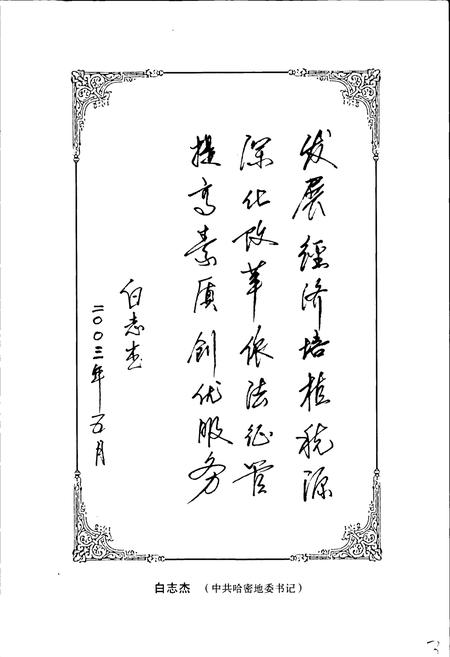 发展经济培植税源
深化改革依法征管
提高素质创优服务
白志杰
二〇〇三年五月
白志杰 （中共哈密地委书记）